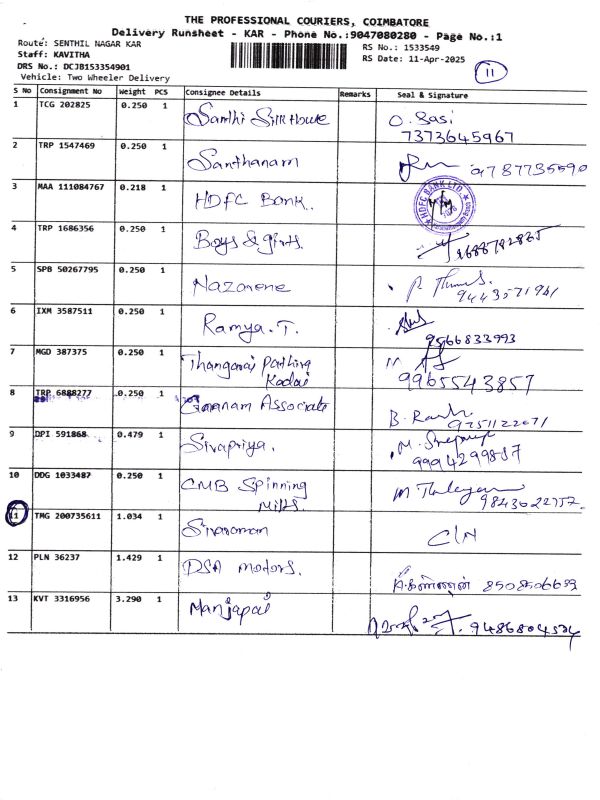 THE PROFESSIONAL COURIERS, COIMBATORE
Delivery Runsheet - KAR - Phone No.:9047080280 - Page No.:1
Route: SENTHIL NAGAR KAR
Staff: KAVITHA
DRS No.: DCJB153354901
Vehicle: Two Wheeler Delivery
RS No.: 1533549
RS Date: 11-Apr-2025
11
S No Consignment No Weight PCS Consignee Details Remarks Seal & Signature
1 TCG 202825 0.250 1 Santhi Silk House O. Sasi
7373645967
2 TRP 1547469 0.250 1 Santhanam 9787735590
3 MAA 111084767 0.218 1 HDFC Bank.. HDFC BANK LTD.
4 TRP 1686356 0.250 1 Boys & girls.
5 SPB 50267795 0.250 1 Nazarene
6 IXM 3587511 0.250 1 Ramya. T. 9566833993
7 MGD 387375 0.250 1 Thangarai
9965543857
8 TRP 6888277 0.250 1 Associate
9 DPI 591868 0.479 1 Sivapriya.
9994299837
10 DDG 1033487 0.250 1 CMB Spinning
Mills.
11 TMG 200735611 1.034 1 Sivaraman C/N
12 PLN 36237 1.429 1 DSA motors. 8508506699
13 KVT 3316956 3.290 1 Manjapai